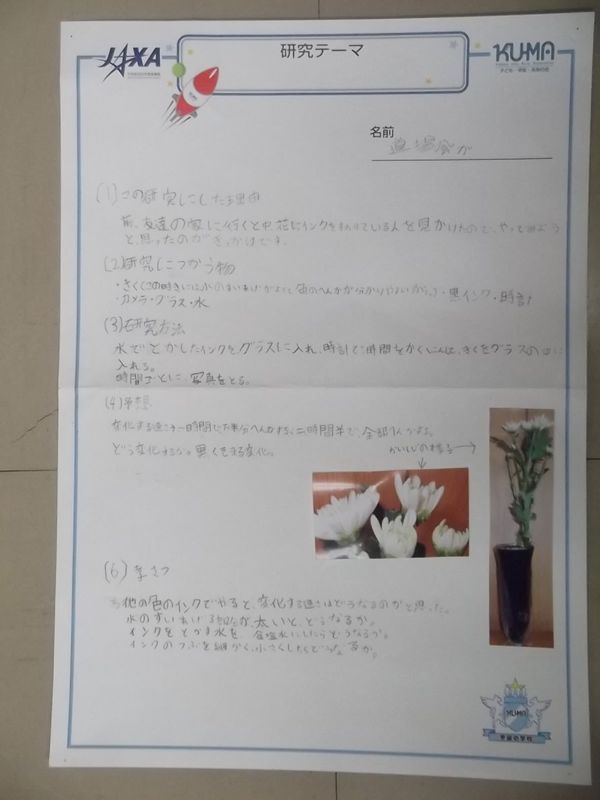 JAXA
研究テーマ
KU-MA
子ども・宇宙・未来の会
名前
(1)この研究にした理由
前、友達の家に行くと中、花にインクを入れている人を見かけたので、やってみよう
と、思ったのがきっかけです。
(2)研究につかう物
・きく(この時きには水のすいあげがよくて色のへんかが分かりやすいから)・黒インク・時計
・カメラ・グラス・水
(3)研究方法
水でとかしたインクをグラスに入れ、時計で時間をかくにんし、きくをグラスの中に
入れる。
時間ごとに、写真をとる。
(4)予想
変化する速さ→一時間で半分へんかする。二時間半で、全部
どう変化するか。黒くなる変化。
の様子→
↓
(6)考さつ
他の色のインクでやると、変化する速さはどうなるのかと思った。
水のすいあげる が、太いと、どうなるか。
インクをとかす水を、食塩水にしたらどうなるか。
インクのつぶを細かく、小さくしたらどうなるか。
KU-MA
宇宙の学校